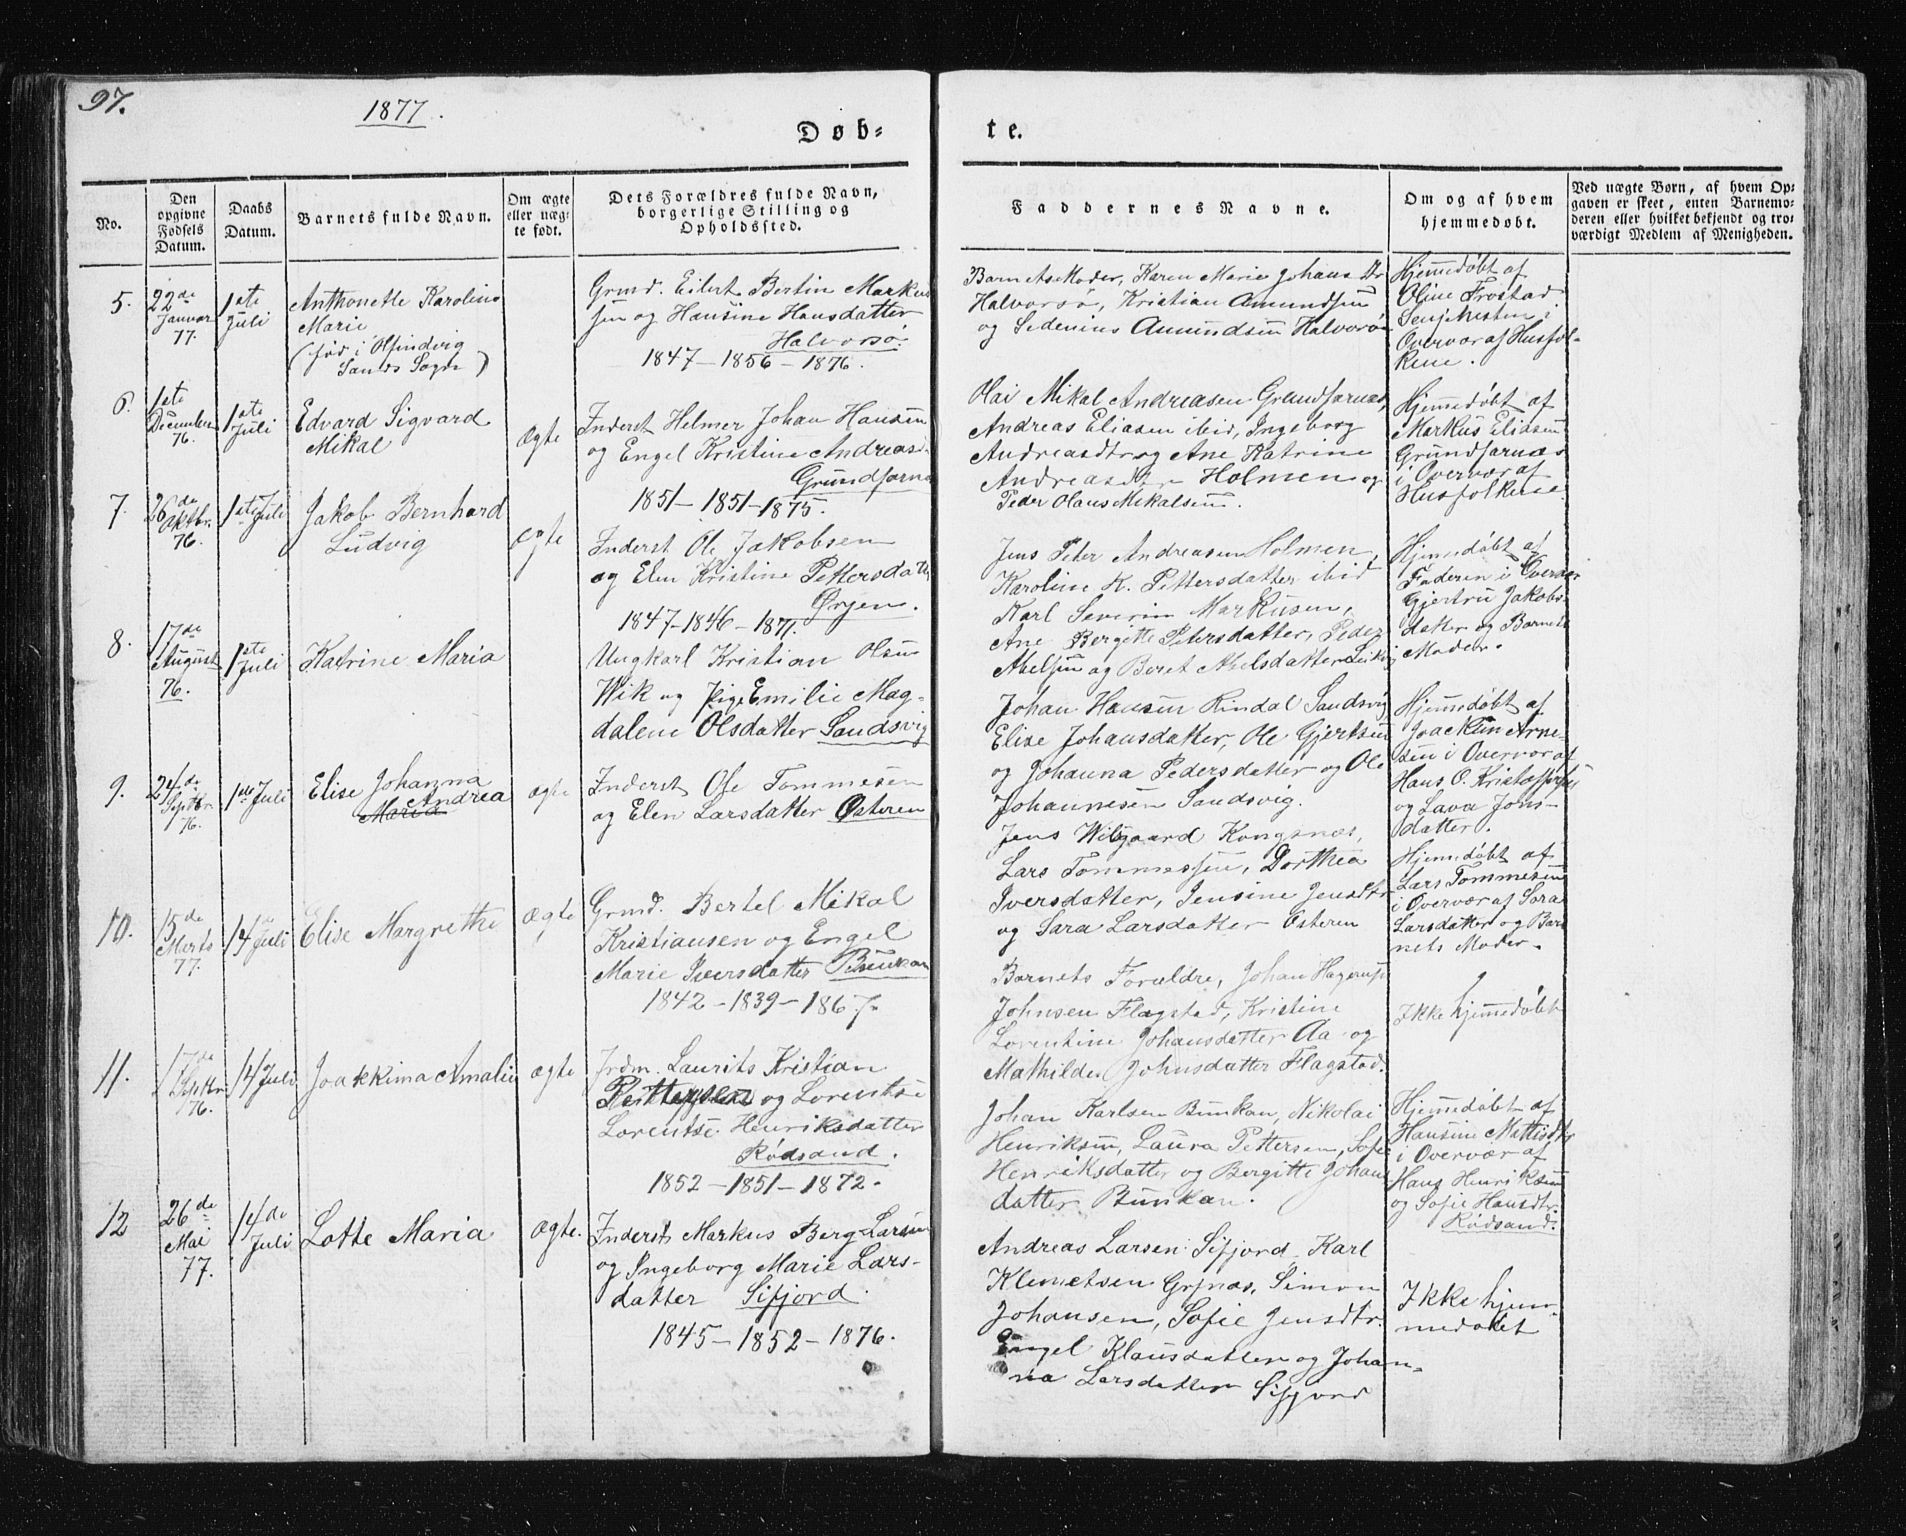 97.
1877.
Døb-
te.
No.
Den opgivne Fødsels Datum.
Daabs Datum.
Barnets fulde Navn.
Om ægte eller uægte født.
Dets Forældres fulde Navn, borgerlige Stilling og Opholdssted.
Faddernes Navne.
Om og af hvem hjemmedøbt.
Ved uægte Børn, af hvem Op-
gaven er skeet, enten Barnemo-
deren eller hvilket bekjendt og tro-
værdigt Medlem af Menigheden.
5.
22de
Januar
77.
1ste
Juli
Anthonette Karoline
Marie
(fød i
Sands Sogn)
Grmd. Eilert Bertin Marku
sen og Hansine Hansdatter
Halvorsø.
1847-1856-1876.
Barnets Moder, Karen Marie Johans Dr
Halvorsø, Kristian Amundsen
og Sedenius Amundsen Halvorsø
Hjemmedøbt af
Oline Frostad
i
Overvær af Husfol-
kene.
6.
1ste
December
76.
1ste
Juli
Edvard Sigvard
Mikal
Ægte
Inderst Helmer Johan Hansen
og Engel Kristine Andreasd
Grundfarnes
1851-1851-1875.
Olai Mikal Andreasen Grundfarnes,
Andreas Eliasen ibid, Ingeborg
Andreasdtr og Ane Katrine
Andreasdtr Holmen og
Peder Olaus Mikalsen.
Hjemmedøbt af
Markus Eliasen
Grundfarnes
i Overvær af
Husfolkene
7.
26de
Oktbr.
76.
1ste Juli
Jakob Bernhard
Ludvig
Ægte
Inderst Ole Jakobsen
og Elen Kristine Pettersdatt
Ørjen.
1847-1846-1871.
Jens Peter Andreasen Holmen,
Karoline K. Pettersdatter ibid
Karl Severin Markusen,
Ane Bergitte Petersdatter, Peder
Abelsen og Beret Abelsdatter Leikvig
Hjemmedøbt af
Faderen i Overvær
Gjertru Jakobs-
datter og Barnets
Moder.
8.
17de
August
76.
1ste
Juli
Katrine Maria
Ungkarl Kristian Olsen
Wik og Pige Emilie Mag-
dalene Olsdatter Sandsvig
Johan Hansen Rindal Sandsvig
Elise Johansdatter, Ole Gjertsen
og Johanna Pedersdatter og Ole
Johannesen Sandsvig.
Hjemmedøbt af
Joackim Arne-
sen i Overvær af
Hans O. Kristoffersen
og Lava Jons-
datter.
9.
24de
Septbr.
76.
1ste Juli
Elise Johanna
Andrea
Maria
Ægte
Inderst Ole Tommesen
og Elen Larsdatter Østeren
Jens Wilgaard Kongsnes,
Lars Tommessen, Dorthea
Iversdatter, Jensine Jensdtr
og Sara Larsdatter Østeren
Hjemmedøbt af
Lars Tommesen
i Overvær af Sara
Larsdatter og Bar
nets Moder.
10.
15de
Marts
77.
14de
Juli
Elise Margrethe
Ægte
Grmd. Bertel Mikal
Kristiansen og Engel
Marie Iversdatter Bunkan
1842-1839-1867.
Barnets Forældre, Johan Hagerup
Johnsen Flagstad, Kristine
Lorentine Johansdatter Aa og
Mathilde Johnsdatter Flagstad.
Ikke hjemmedøbt
11.
17de
Septbr
76.
14 Juli
Joakkima Amalie
Ægte
Jrdm. Laurits Kristian
Pettersen og Lorentse
Lorentse Henriksdatter
Rødsand.
1852-1851-1872.
Johan Karlsen Bunkan, Nikolai
Henriksen, Laura Pettersen, Sofie
Henriksdatter og Bergitte Johans
datter Bunkan.
Hjemmedøbt af
Hansine Mattisdtr
i Overvær af
Hans Henriksen
og Sofie Hansdtr.
Rødsand.
12
26de
Mai
77.
14de
Juli
Lotte Maria
Ægte.
Inderst Markus Berg Larsen
og Ingeborg Marie Lars-
datter Sifjord.
1845-1852-1876.
Andreas Larsen Sifjord, Karl
Klemetsen Grjnæs, Simon
Johansen, Sofie Jensdtr.
Engel Klausdatter og Johan-
na Larsdatter Sifjord
Ikke hjem-
medøbt